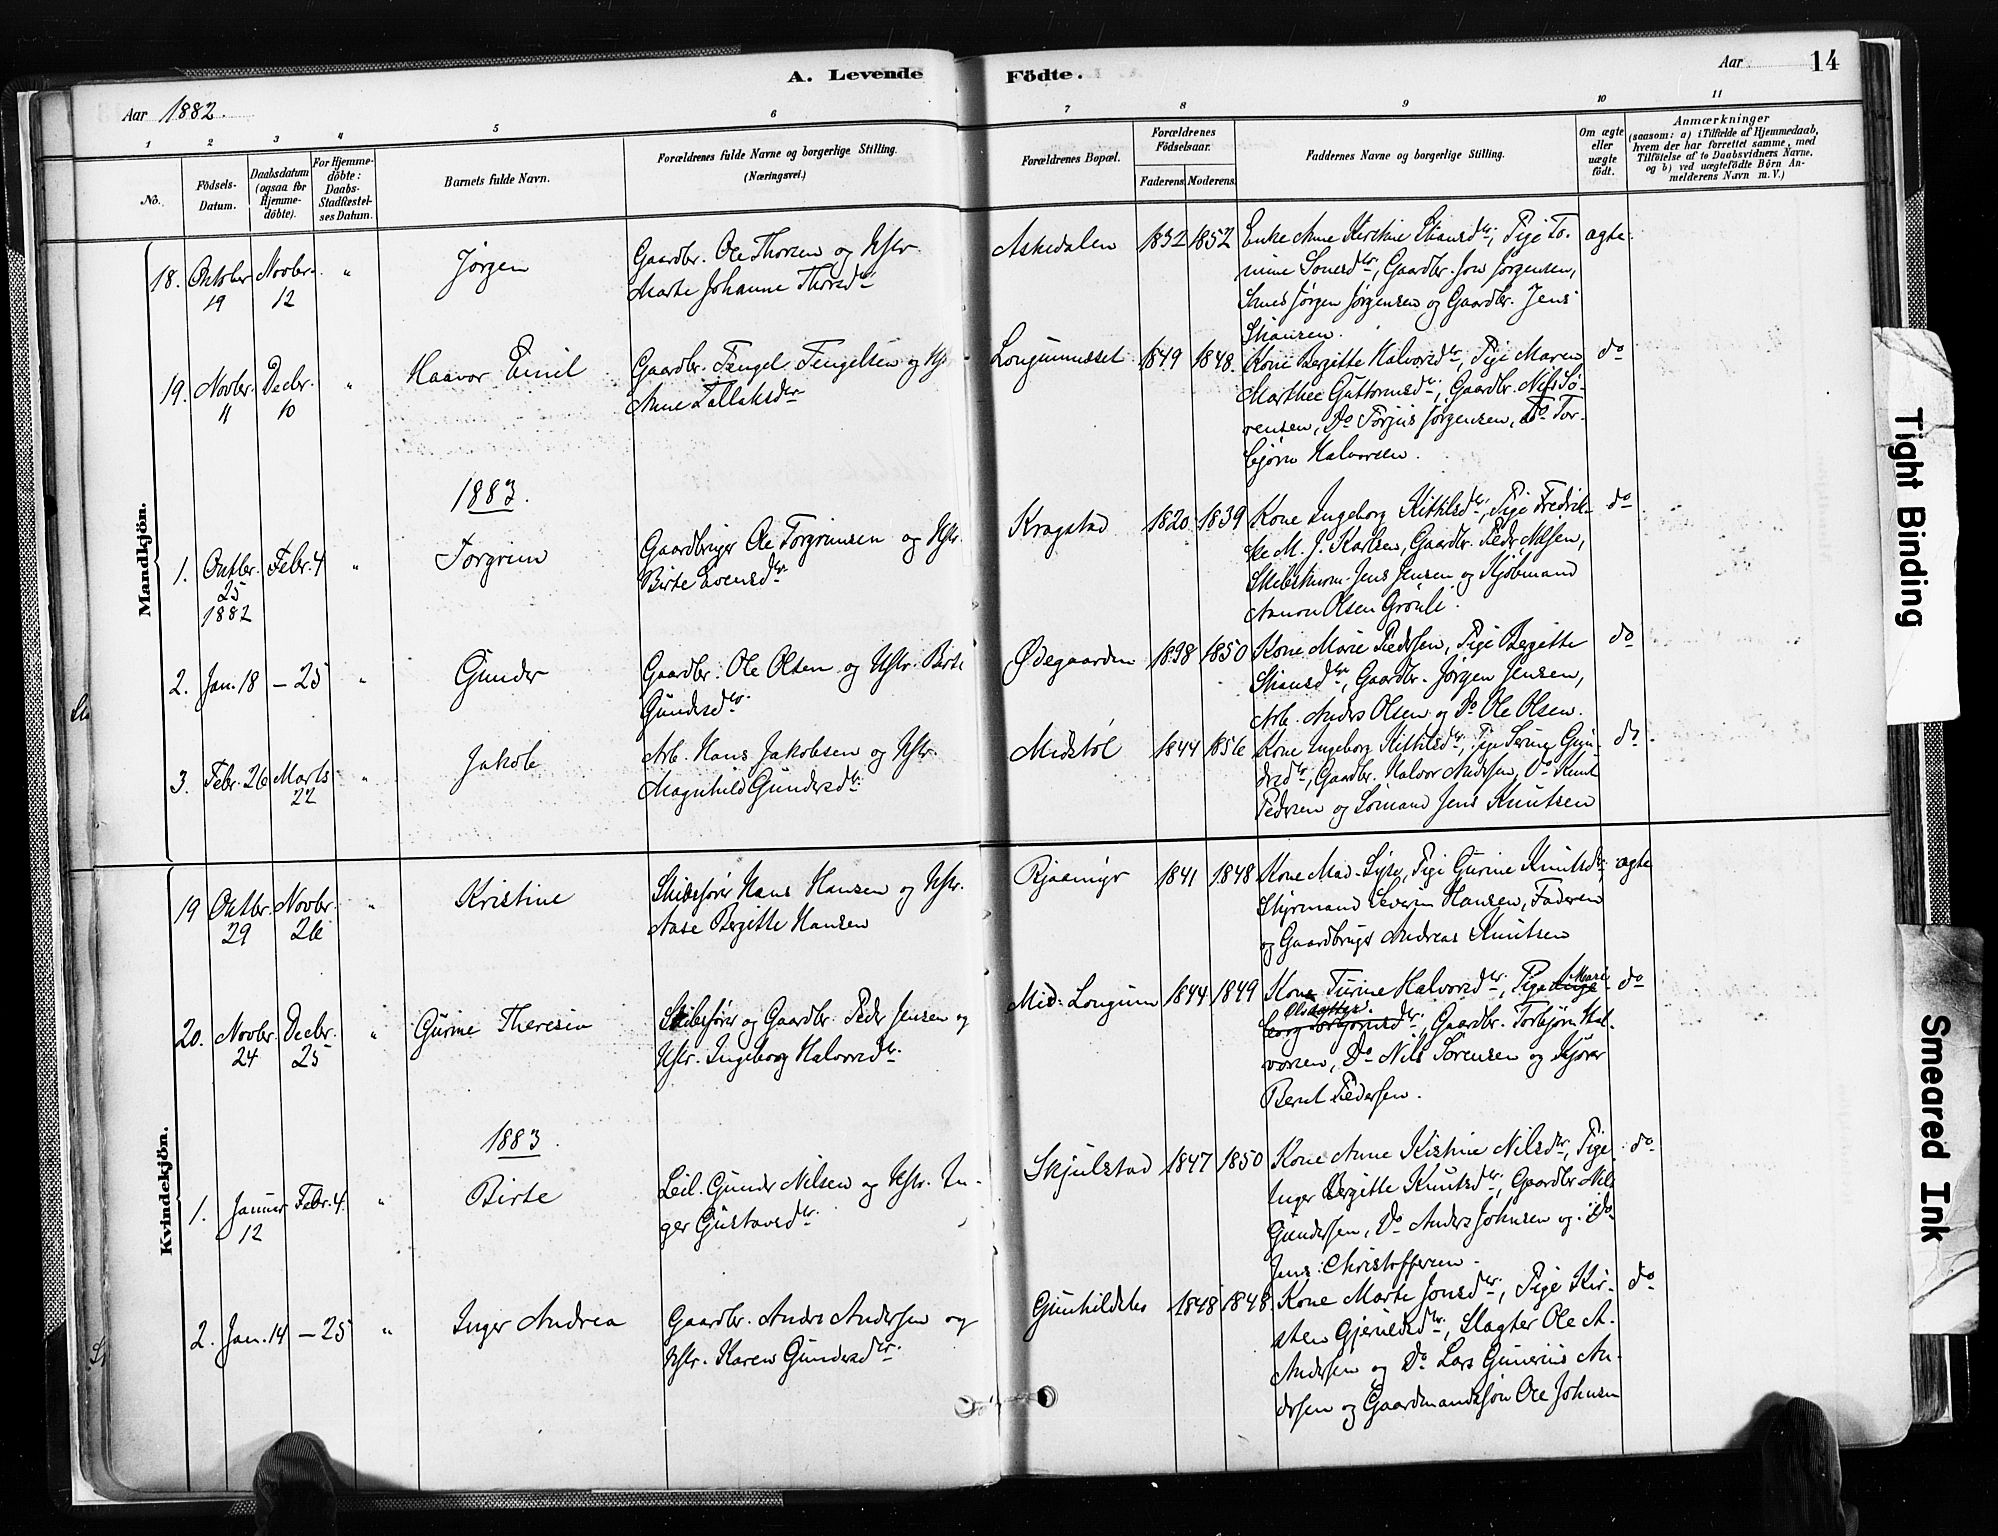 A. Levende Födte.
Aar 14
Aar 1882.
1 2 3 4 5 6 7 8 9 10 11
No. Födsels-Datum. Daabsdatum (ogsaa for Hjemme-döbte). For Hjemme-döbte: Daabs-Stadfæstel-ses Datum. Barnets fulde Navn. Forældrenes fulde Navne og borgerlige Stilling. (Næringsvei.) Forældrenes Bopæl. Forældrenes Födselsaar. Faderens. Moderens. Faddernes Navne og borgerlige Stilling. Om ægte eller uægte födt. Anmærkninger (saasom: a) i Tilfælde af Hjemmedaab, hvem der har forrettet samme, med Tilföielse af to Daabsvidners Navne, og b) ved uægtefödte Börn An-melderens Navn m. V.)
Mandkjön.
18. Oktober 19 Novbr. 12 " Jørgen
Gaardbr. Ole Thorsen og Hstr.
Marte Johanne Thorsdtr
Askedalen 1832 1852
Enke Anne Kirstine dtr, Pige To-
mine dtr, Gaardbr. Jon Jørgensen,
Jørgen Jørgensen og Gaardbr. Jens
ægte
19. Novbr. 11 Decbr. 10 " Haavor Emil
Gaardbr. Tengel Tengelsen og
Anne Tallaksdtr
1849 1848
Kone Bergitte Halvorsdtr, Pige Maren
Marthee Guttormsdtr, Gaardbr. Nils Sø-
rensen, Do Torjus Jørgensen, Do Tor-
bjørn Halvorsen.
do
1883.
1. Oktbr. 25 1882 Febr. 4 " Torgrim
Gaardbruger Ole Torgrimsen og Hstr.
Birte Evensdtr
Kragstad 1820 1839
Kone Ingeborg Kittilsdtr, Pige Fredrik-
ke M. J. Karlsen, Gaardbr. Peder Nilsen,
Jens Jensen og Kjøbmand
Aanon Olsen Grønli.
do
2. Jan. 18 – 25 " Gunder
Gaardbr. Ole Olsen og Hstr. Birte
Gundersdtr
Ødegaarden 1850
Kone Marie Pedersen, Pige Bergitte
dtr, Gaardbr. Jørgen Jensen,
Arb. Anders Olsen og Do Ole Olsen.
do
3. Febr. 26 Marts 22 " Jakob
Arb. Hans Jakobsen og Hstr.
Magnhild Gundersdtr
Midstøl 1844 1856
Kone Ingeborg Kittilsdtr, Pige Serine Gun-
dersdtr, Gaardbr. Halvor Andersen, Do Knut
Pedersen og Sømand Jens Knutsen
do
Kvindekjön.
19 Oktbr. 29 Novbr. 26 " Kristine
Skibsfører Hans Hansen og Hstr.
Aase Bergitte Hansen
1841 1848
Kone Pige Gurine Knutsdtr
Styrmand Severin Hansen, Faderen
og Gaardbruger Andreas Knutsen
ægte
20. Novbr. 24 Decbr. 25 " Gurine Theresia
Skibsfører og Gaardbr. Peder Jensen og
Hstr. Ingeborg Halvorsdtr
Mid. Longum 1844 1849
Kone Turine Halvorsdtr, Pige
Olsdatter, Gaardbr. Torbjørn Hal-
vorsen, Do Nils Sørensen og
Bernt Pedersen.
do
1883.
1. Januar 12 Febr. 4. " Birte
Leil. Gunder Nilsen og Hstr. In-
ger Gustavsdtr
Skjulstad 1847 1850
Kone Anne Kistine Nilsdtr, Pige
Inger Bergitte Knutsdtr, Gaardbr Nils
Gundersen, Do Anders Johnsen og Do
Jens Christoffersen.
do
2. Jan. 14 – 25 " Inger Andrea
Gaardbr. Anders Andersen og
Hstr. Karen Gundersdtr
1848 1848
Kone Marte Jonsdtr, Pige Kir-
sten dtr, Slagter Ole A.
Andersen og Do Lars Gunerius An-
dersen og Gaardmandssøn Ole Johnsen
do
Tight Binding
Smeared Ink